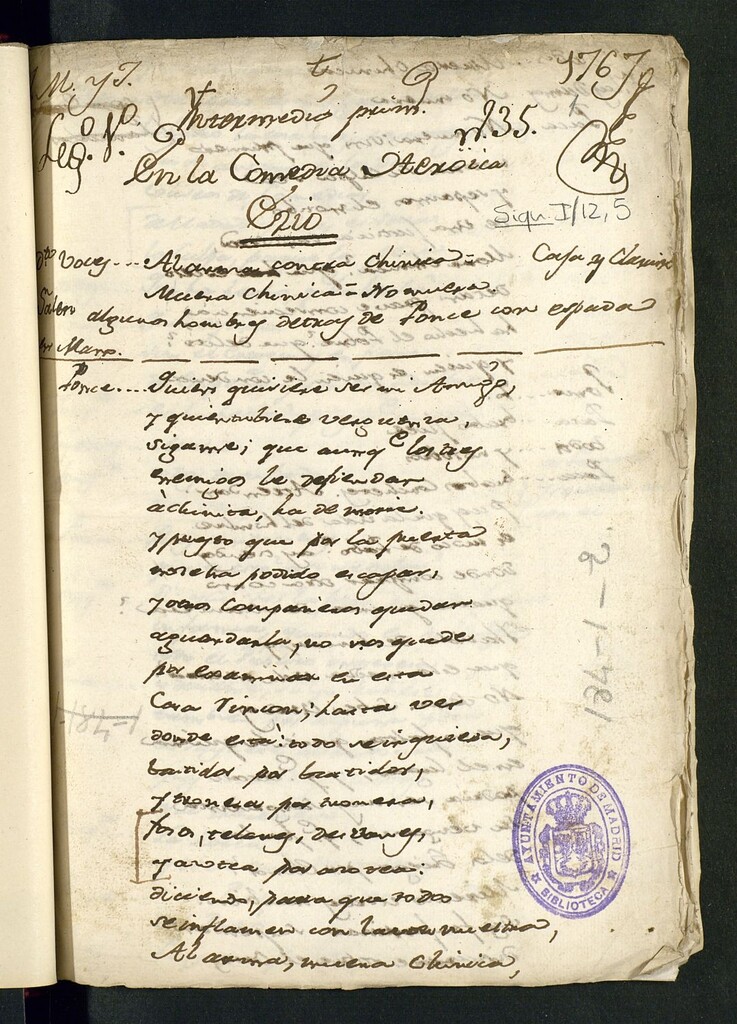 J. M. y J.
1767
Leg.º 1.º
Intermedio prim.º
nº 35.
En la Comedia Heroica
Ezio
Sign. I/12, 5
Voces... Al arma contra Chinica = Caja y Clarin
Muera Chinica = No muera.
Salen algunos hombres detras de Ponce con espada
en Mano.
Ponce.... Quien quisiere ser mi Amigo,
y quien tubiere verguenza,
sigame; que aunq.e los tres
enemigos le defiendan
à chinica, ha de morir.
y puesto que por la puerta
no se ha podido escapar,
y otros Compañeros quedan
aguardarla, no nos quede
por examinar en esta
Casa Rincon; hasta ver
donde està: todo se inquiera,
bastidor por bastidor,
y tronera por tronera,
foso, telares, desvanes,
y azotea por azotea:
diciendo, para que todos
se inflamen con la voz nuestra,
Al arma, muera Chinica,
184-1-2
1-184-
AYUNTAMIENTO DE MADRID
BIBLIOTECA